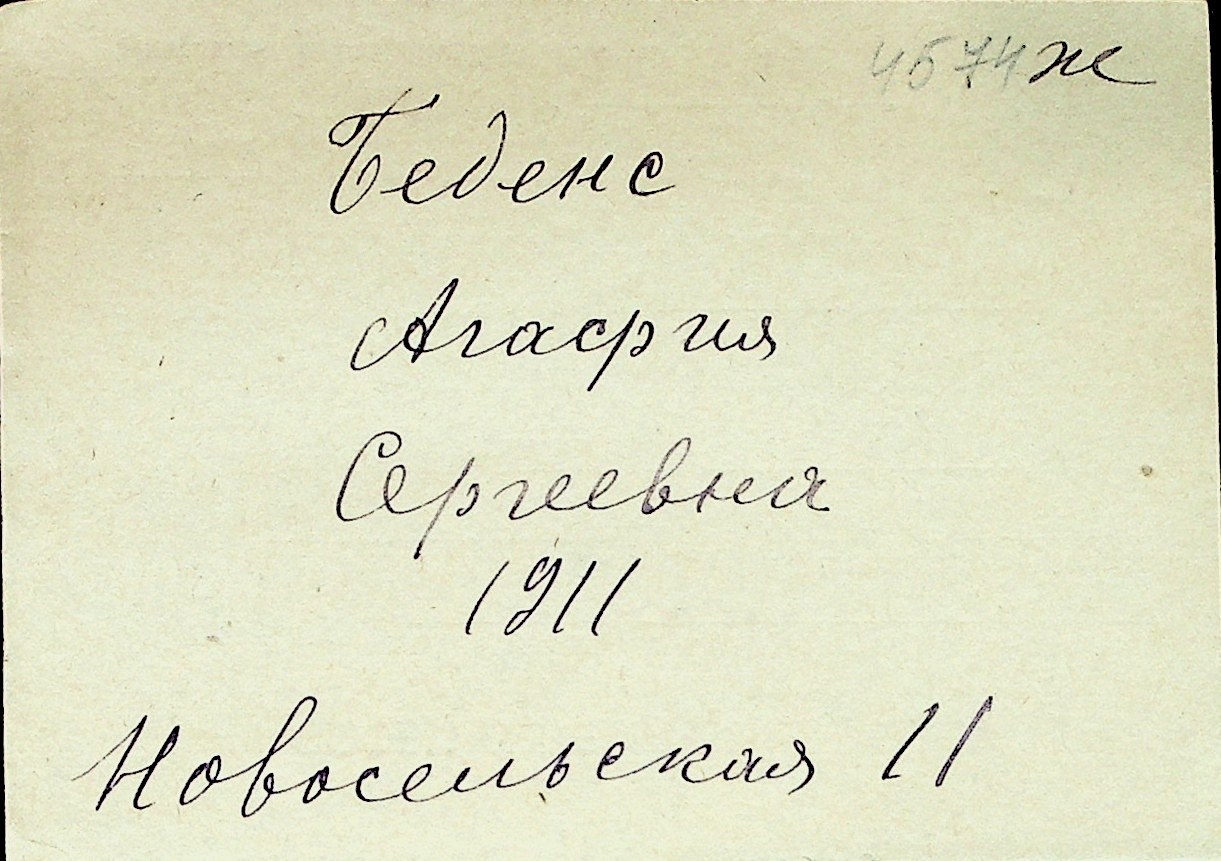 4574ж
Беденс
Агафия
Сергеевна
1911
Новосельская 11